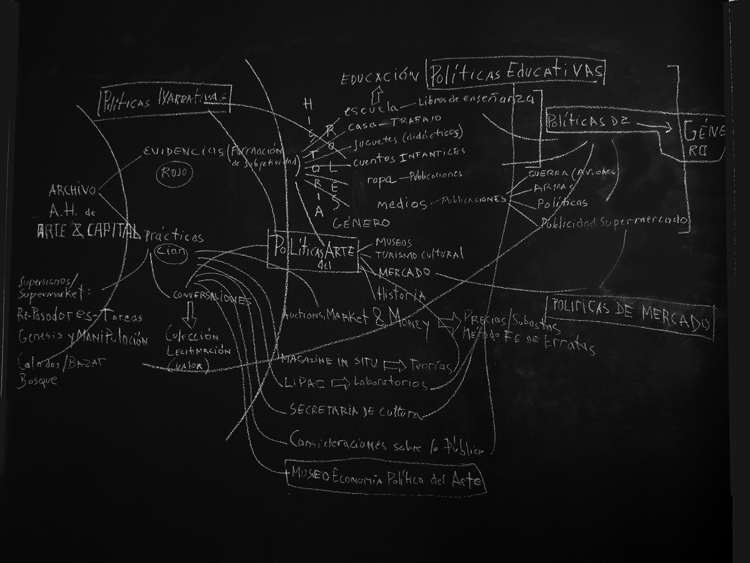 EDUCACIÓN
POLÍTICAS EDUCATIVAS
Políticas Narrativa=
HISTORIA
ROLES
escuela
Libros de enseñanza
casa
TRABAJO
juguetes (didácticos)
cuentos INFANTILES
ropa
Publicaciones
medios
PUBLICACIONES
GÉNERO
Políticas DE
GÉNE
RO
EVIDENCIAS
(Formación
de subjetividad)
ROJO
GUERRA (AVIONES
ARMAS
Políticas
Publicidad Supermercado
ARCHIVO
A.H. de
ARTE & CAPITAL
Prácticas
Cian
POLÍTICAS ARTE
del
MUSEOS
TURISMO CULTURAL
MERCADO
Historia
Supersignos/
Supermarket:
Reposadores-Tareas
Genesis y MANIPULACIÓN
Calados/BAZAR
Bosque
CONVERSACIONES
COLECCIÓN
LEGITIMACIÓN
(VALOR)
POLITICAS DE MERCADO
Auctions, Market & Money
Precios/Subastas
Método FE de Erratas
MAGAZINE IN SITU
Teorías
LIPAC
Laboratorios
SECRETARÍA DE Cultura
Consideraciones sobre lo Público
MUSEO Economía Política del Arte